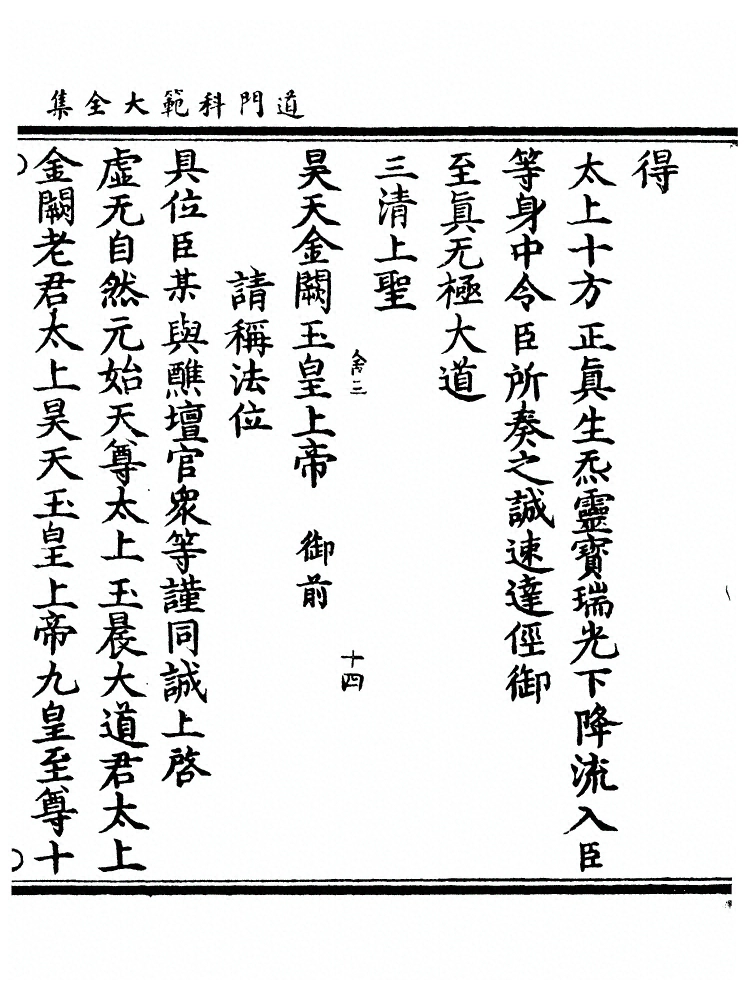 道門科範大全集
得
太上十方正眞生炁靈寶瑞光下降流入臣
等身中令臣所奏之誠速達俓御
至眞无極大道
三清上聖
昊天金闕玉皇上帝　御前
十四
請稱法位
具位臣某與醮壇官衆等謹同誠上啓
虛无自然元始天尊太上玉晨大道君太上
金闕老君太上昊天玉皇上帝九皇至尊十